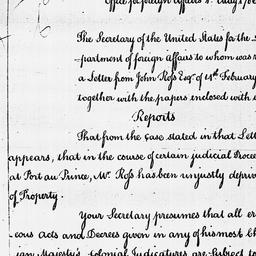 Office for foreign Affairs
The Secretary of the United States for the
partment of foreign Affairs to whom was
a Letter from John Ross Esqr. of 14th February
together with the papers enclosed with
Reports
That from the Case stated in that Let
appears, that in the course of certain judicial Procee
at Port au Prince, Mr. Ross has been unjustly depriv
of Property.
Your Secretary presumes that all er
-eous acts and Decrees given in any of his most Ch
ian Majesty's Colonial Judicatures are Subject to